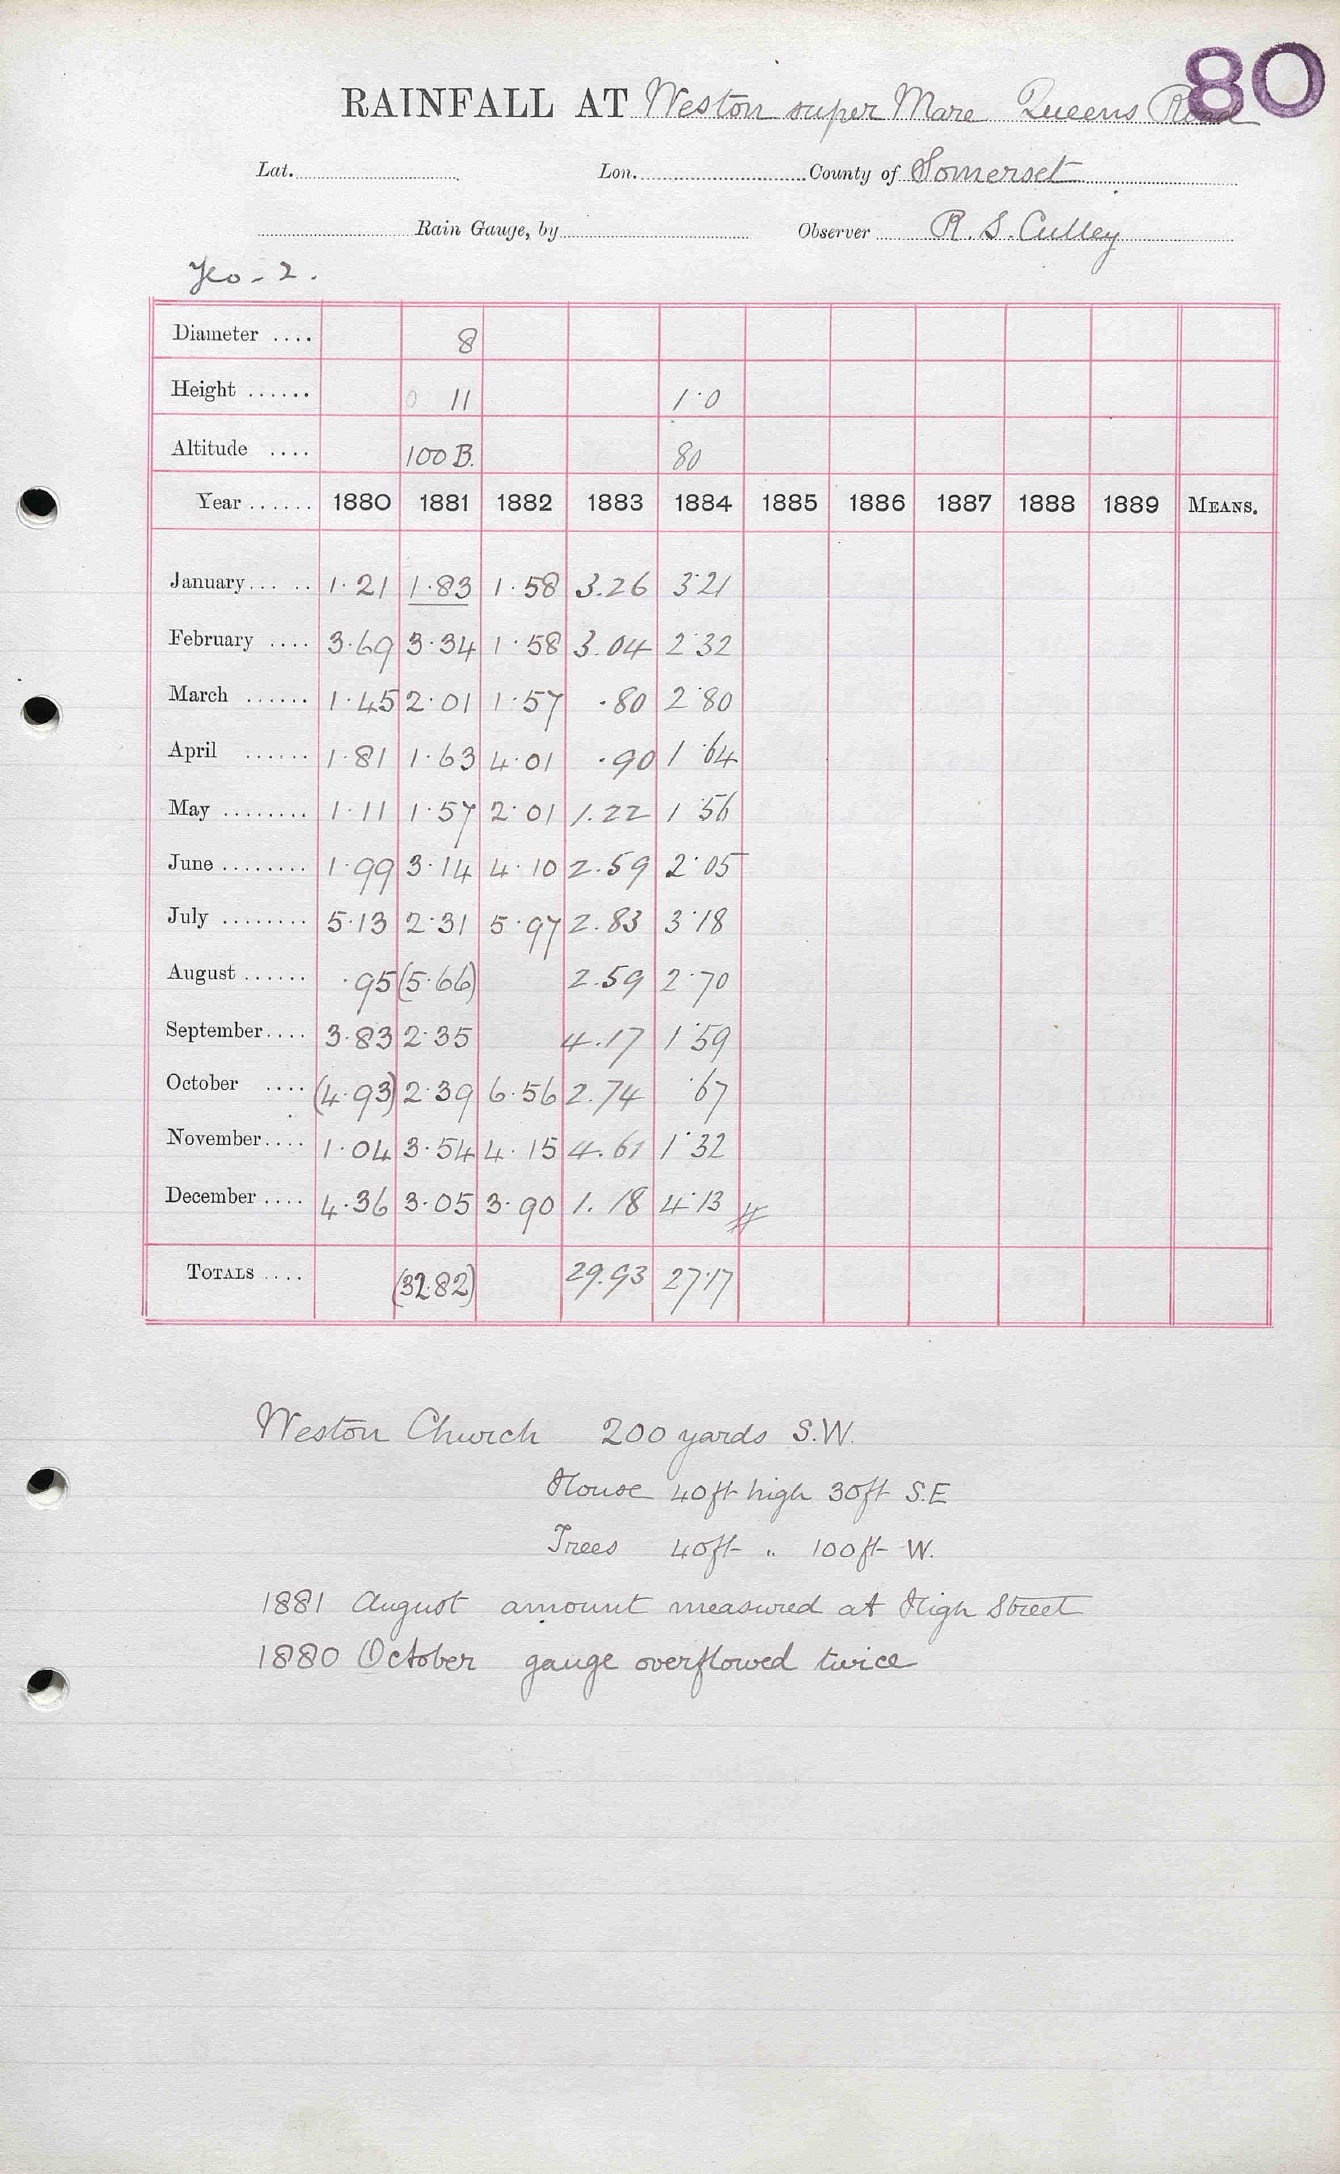 80
RAINFALL AT Weston super Mare Queens Road
Lat. Lon. County of Somerset
Rain Gauge, by Observer R. S. Culley
Yeo - 2.
Diameter .... 8
Height ...... 0 11 1·0
Altitude .... 100 B. 80
Year ...... 1880 1881 1882 1883 1884 1885 1886 1887 1888 1889 MEANS.
January ...... 1·21 1·83 1·58 3.26 3·21
February .... 3·69 3·34 1·58 3.04 2·32
March ...... 1·45 2·01 1·57 ·80 2·80
April ...... 1·81 1·63 4·01 ·90 1·64
May ........ 1·11 1·57 2·01 1.22 1·56
June ........ 1·99 3·14 4·10 2.59 2·05
July ........ 5·13 2·31 5·97 2.83 3·18
August ...... ·95 (5·66) 2.59 2·70
September .... 3·83 2·35 4.17 1·59
October .... (4·93) 2·39 6·56 2.74 ·67
November .... 1·04 3·54 4·15 4.61 1·32
December .... 4·36 3·05 3·90 1.18 4·13
TOTALS .... (32·82) 29.93 27·17
Weston Church 200 yards S.W.
House 40ft high 30ft S.E
Trees 40ft " 100ft W.
1881 August amount measured at High Street
1880 October gauge overflowed twice